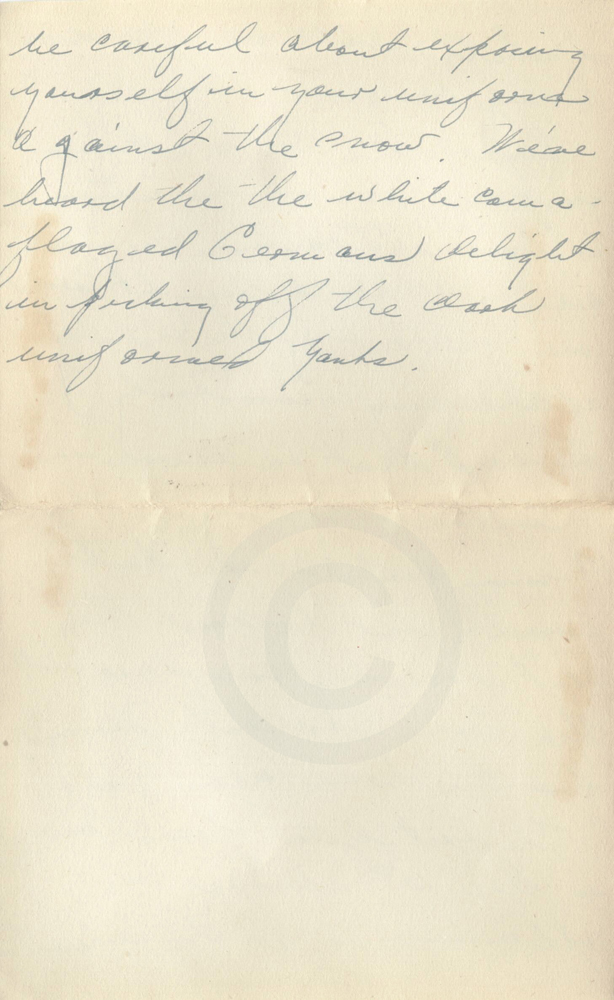 be careful about exposing
yourself in your uniform
against the snow. We've
heard the the white cama-
flaged Germans delight
in picking off the dark
uniformed Yanks.
©